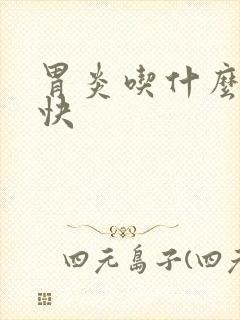 胃炎喫什麼
快
四元島子(四元